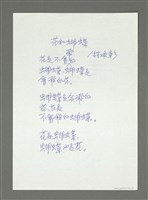 花和蝴蝶
花是不會飛的
蝴蝶,蝴蝶是
會飛的花。
蝴蝶是會飛的
花,花是
不會飛的蝴蝶。
花是蝴蝶,
蝴蝶也是花。